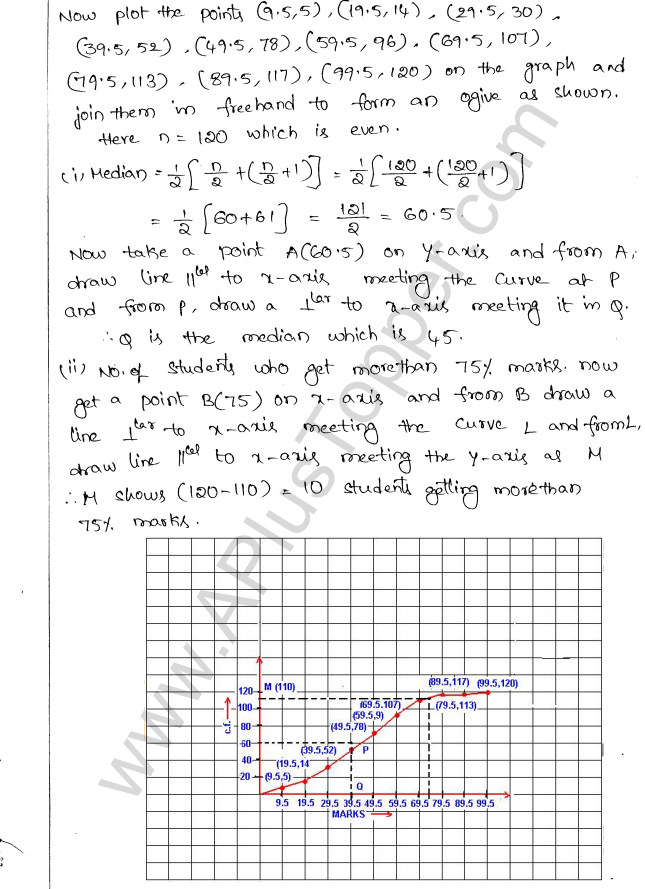 Now plot the points (9.5,5), (19.5,14), (29.5, 30),
(39.5, 52), (49.5, 78), (59.5, 96), (69.5, 107),
(79.5, 113), (89.5, 117), (99.5, 120) on the graph and
join them in freehand to form an ogive as shown.
Here n = 120 which is even.
(i) Median = 1/2 [n/2 + (n/2 + 1)] = 1/2 [120/2 + (120/2 + 1)]
= 1/2 [60+61] = 121/2 = 60.5
Now take a point A(60.5) on Y-axis and from A,
draw line ||lel to x-axis meeting the curve at P
and from P, draw a ⊥lar to x-axis meeting it in Q.
∴ Q is the median which is 45.
(ii) No. of students who get morethan 75% marks. now
get a point B(75) on x-axis and from B draw a
line ⊥lar to x-axis meeting the curve L and from L,
draw line ||lel to x-axis meeting the y-axis as M
∴ M shows (120-110) = 10 students getting morethan
75% marks.
www.APlusTopper.com
(89.5,117) (99.5,120)
120 M (110)
100 (69.5.107) (79.5,113)
c.f. (59.5,9)
80 (49.5,78)
60 (39.5,52) P
40 (19.5,14
20 (9.5,5)
Q
9.5 19.5 29.5 39.5 49.5 59.5 69.5 79.5 89.5 99.5
MARKS